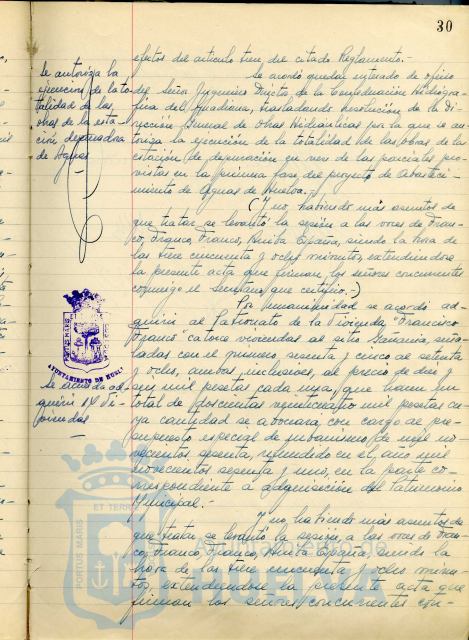 30
efectos del artículo tres del citado Reglamento.-
Se autoriza la
ejecución de la to-
talidad de las
obras de la esta-
ción depuradora
de Aguas
Se acordó quedar enterado de oficio
del Señor Ingeniero Director de la Confederación Hidrográ-
fica del Guadiana, trasladando resolución de la Di-
rección General de Obras Hidraúlicas por la que se au-
toriza la ejecución de la totalidad de las obras de la
estación de depuración en vez de las parciales pre-
vistas en la primera fase del proyecto de abasteci-
miento de aguas de Huelva.-
(Y no habiendo más asuntos de
que tratar se levantó la sesión a las voces de Fran-
co, Franco, Franco, Arriba España, siendo la hora de
las siete cincuenta y ocho minutos, extendiéndose
la presente acta que firman los señores concurrentes
conmigo el Secretario que certifico.-)
AYUNTAMIENTO DE HUELVA
Se acordó ad-
quirir 14 vi-
viendas
Por unanimidad se acordó ad-
quirir al Patronato de la Vivienda "Francisco
Franco" catorce viviendas al sitio señala-
ladas con el número sesenta y cinco al setenta
y ocho, ambos inclusives, al precio de diez y
seis mil pesetas cada una, que hacen un
total de doscientas veinticuatro mil pesetas cu-
ya cantidad se abonará con cargo al pre-
supuesto especial de urbanismo de mil no-
vecientos sesenta, refundido en el año mil
novecientos sesenta y uno, en la parte co-
rrespondiente a adquisición del Patrimonio
Municipal.
Y no habiendo más asuntos de
que tratar se levantó la sesión a las voces de Fran-
co, Franco, Franco, Arriba España, siendo la
hora de las siete cincuenta y ocho minu-
tos, extendiéndose la presente acta que
firman los señores concurrentes con-
PORTUS MARIS
ET TERRE
HUELVA